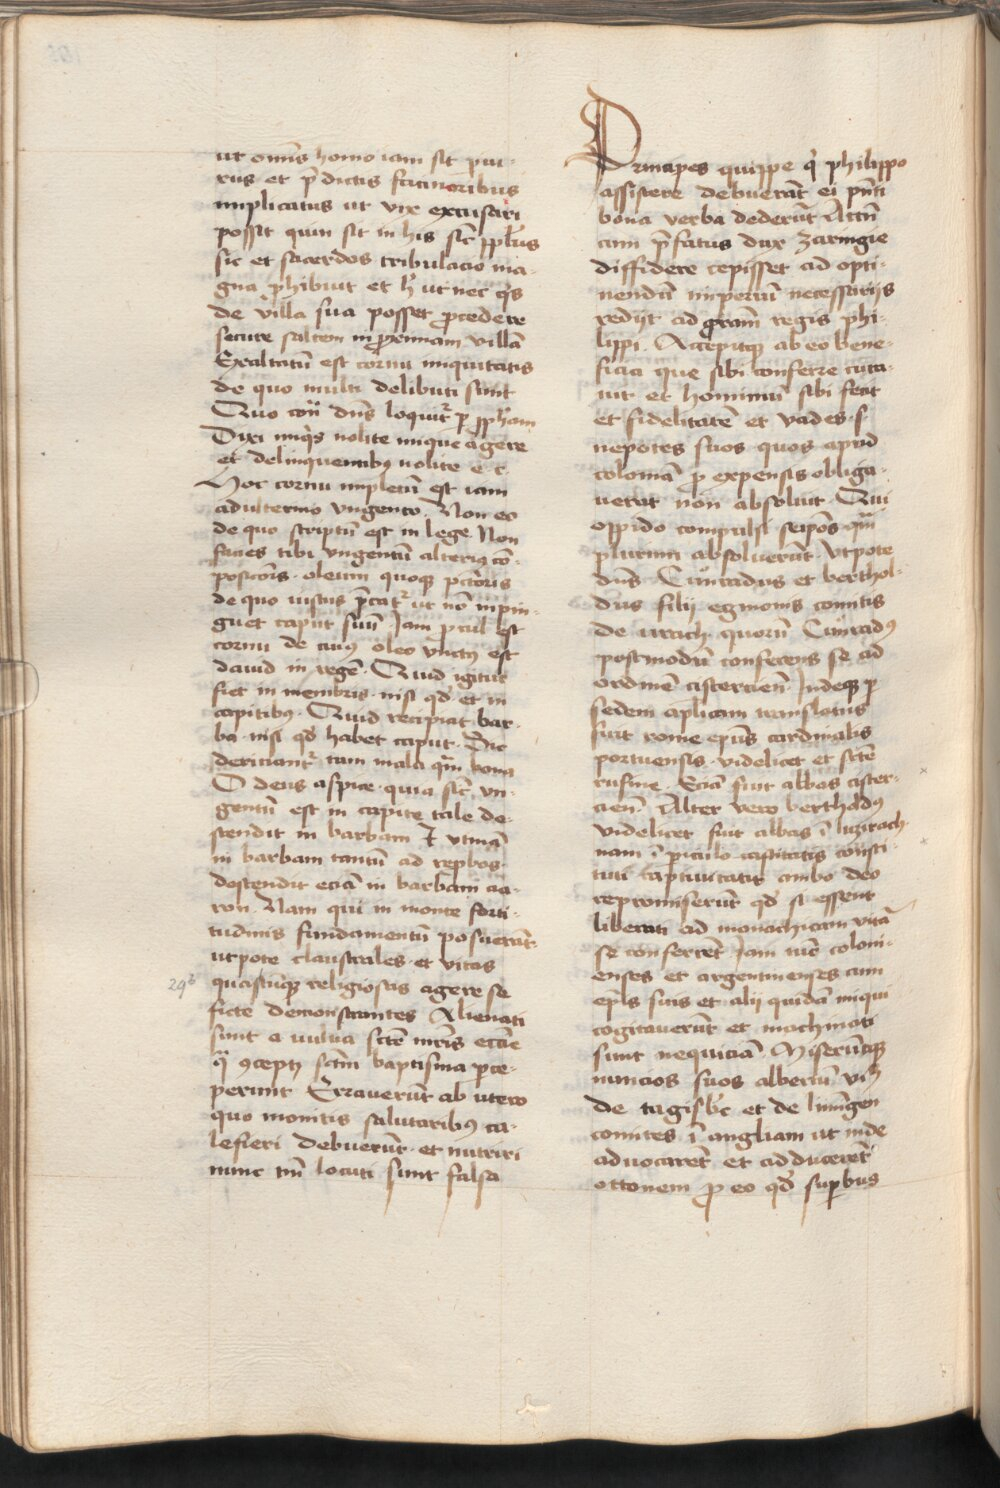 ut om̄is homo iam sit piu-
rus et p̄dictis facinoribus
implicatus ut vix excusari
possit quin sit in his sic̄ ppl̄us
sic et sacerdos tribulacio ma-
gna p̄hibuit et h̄ ut nec q̄s
de villa sua posset ꝓcedere
secure saltem in ꝓximam villā
Exaltatū est cornu iniquitatis
de quo multi delibuti sunt
Quo con̄ dn̄s loquit᷑ ꝑ ꝓph̄am
Dixi iniq̄s nolite inique agere
et delinquentibꝰ nolite e c
Hoc cornu impletū est iam
adulterino vngento. Non eo
de quo scriptū est in lege Non
facies tibi vngentū alteriꝰ cō-
posicōis. oleum quoqꝫ pctōris
de quo iustus p̄cat᷑ ut nō inpin-
guet caput suū Iam ꝓcul est
cornu de cuiꝰ oleo vnctꝰ est
dauid in regē. Quid igitur
fiet in membris. nisi qd̄ et in
capitibꝰ. Quid recipiat bar-
ba nisi qd̄ habet caput. Sic
deriuant᷑ tam mala qm̄ bona
O deus aspice. quia sic̄ vn-
gentū est in capite tale de-
scendit in barbam Et vtinā
in barbam tantū ad replbos.
descendit eciā in barbam aa-
ron. Nam qui in monte forti-
tudinis fundamentū posuerūt
utpote claustrales. et vitas
quascūqꝫ religiosas agere se
ficte demonstrantes Alienati
sunt a uulua sctē mr̄is eccīe
q̄ ꝯceptꝫ sctm̄ baptisma ꝑce-
perunt Errauerūt ab utero
quo monitis salutaribꝰ ca-
lefieri debuerūt. et nutriri
nunc tn̄ locuti sunt falsa
29b
Principes quippe q̄ philippo
assistere debuerāt ei pn̄ti
bona verba dederūt Attn̄
cum p̄fatus dux zaringie
diffidere cepisset ad opti-
nendū imperiū necessarijs
redijt ad gram̄ regis phi-
lippi. Accepitqꝫ ab eo bene-
ficia que sibi conferre cura-
uit et hominiū sibi fecit
et fidelitatē et vades. s
nepotes suos quos apud
coloniā ꝓ expensis obliga-
uerat non absoluit. Qui
oppido compulsi seipōs qm̄
plurimi absoluerūt. Vtpote
dn̄s Cůnradus et berthol-
dus filij egmonis comitis
de urach. quorū Cůnradꝰ
postmodū conferens se ad
ordinē cistercien̄. Indeqꝫ ꝑ
sedem aplicam translatus
fuit rome epūs cardinalis
portuensis. videlicet et sctē
rufine. Eciā fuit abbas cister-
cien̄. Alter vero bertholdꝰ
videlicet fuit abbas ī luzirach.
nam ī ꝑiculo castitatis consti-
tuti captiuitatis ambo deo
repromiserūt qd̄ si essent
liberati ad monachicam vitā
se conferrēt Iam tūc coloni-
enses et argentinenses cum
epīs suis et alij quidā iniqui
cogitauerūt et machinati
sunt nequiciā. Miserūtqꝫ
nuncios suos albertū viꝫ
de tagisbc̄ et de linin̄gen
comites ī angliam ut inde
aduocarēt et adducerēt
ottonem ꝓ eo qd̄ suꝑbus